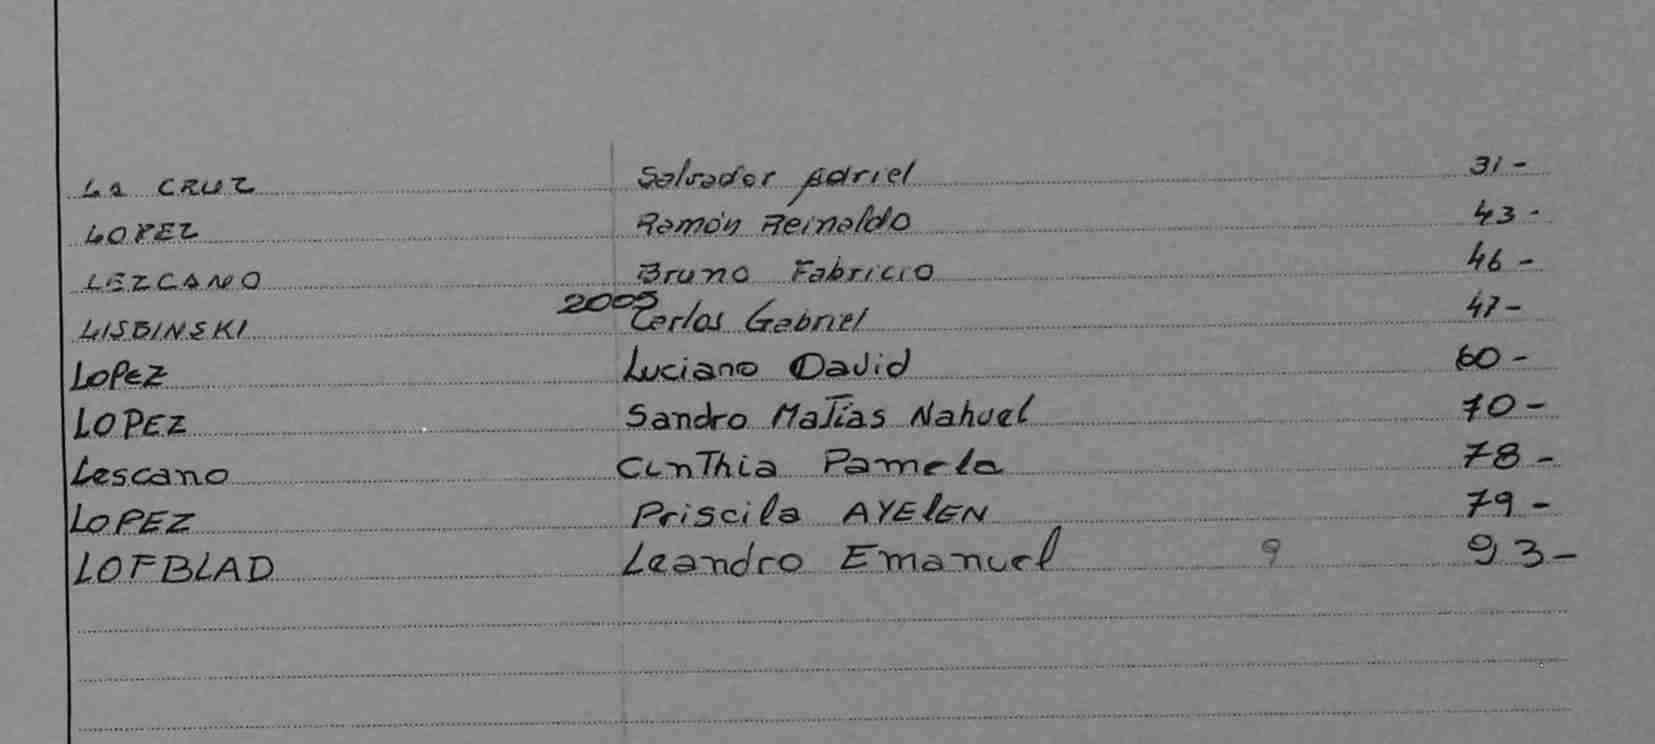 La CRUZ Salvador Adriel 31-
LOPEZ Ramón Reinaldo 43-
LEZCANO Bruno Fabricio 46-
LISBINSKI 2005 Carlos Gabriel 47-
LOPEZ Luciano David 60-
LOPEZ Sandro Matías Nahuel 70-
Lescano CinThia Pamela 78-
LOPEZ Priscila AYElEN 79-
LOFBLAD Leandro Emanuel 9 93-